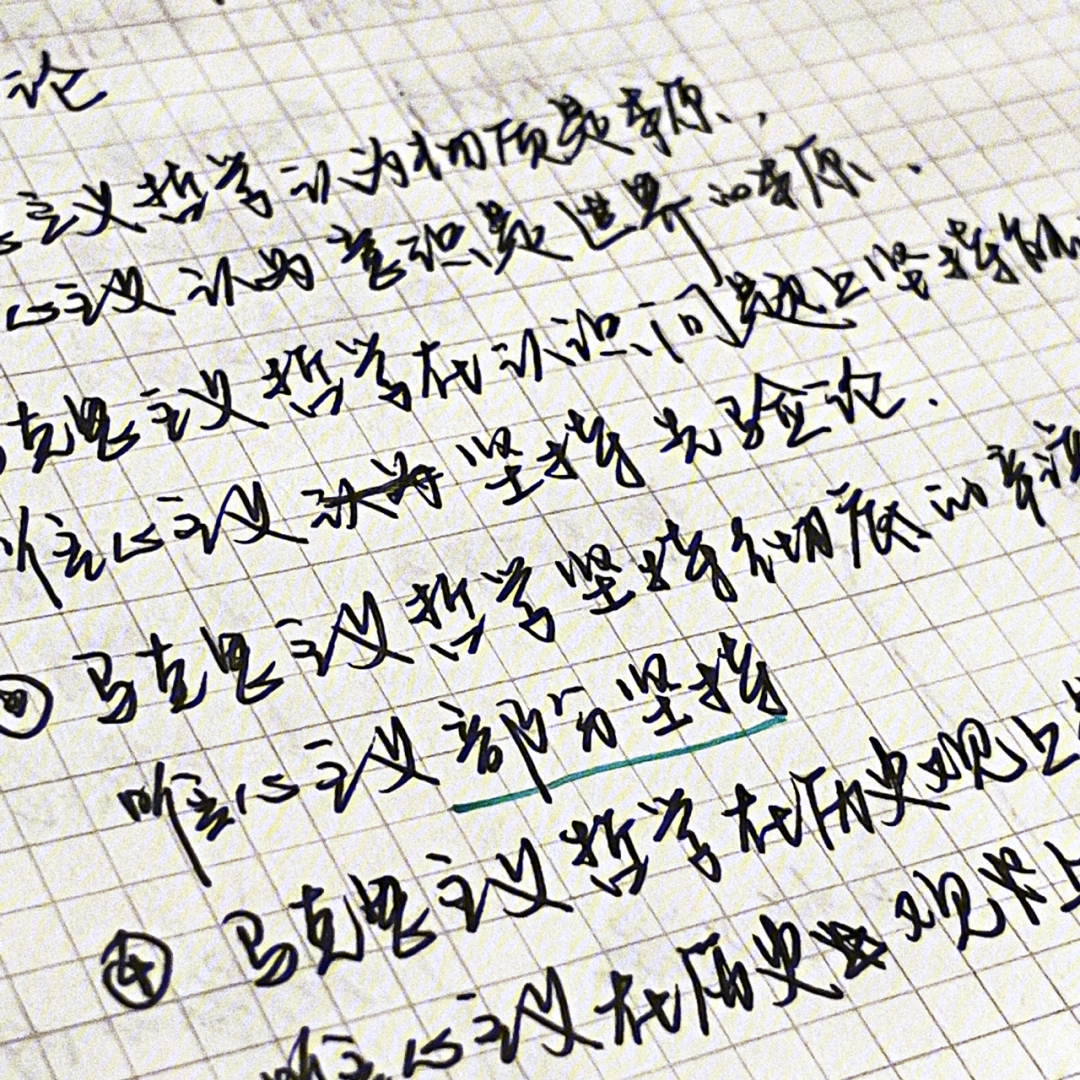 论
主义哲学认为物质是本原.
心主义认为意识是世界的本原.
克思主义哲学在认识问题上坚持
唯心主义认为坚持先验论.
马克思主义哲学坚持彻底的辩
唯心主义部分坚持
④ 马克思主义哲学在历史观上
唯心主义在历史观上